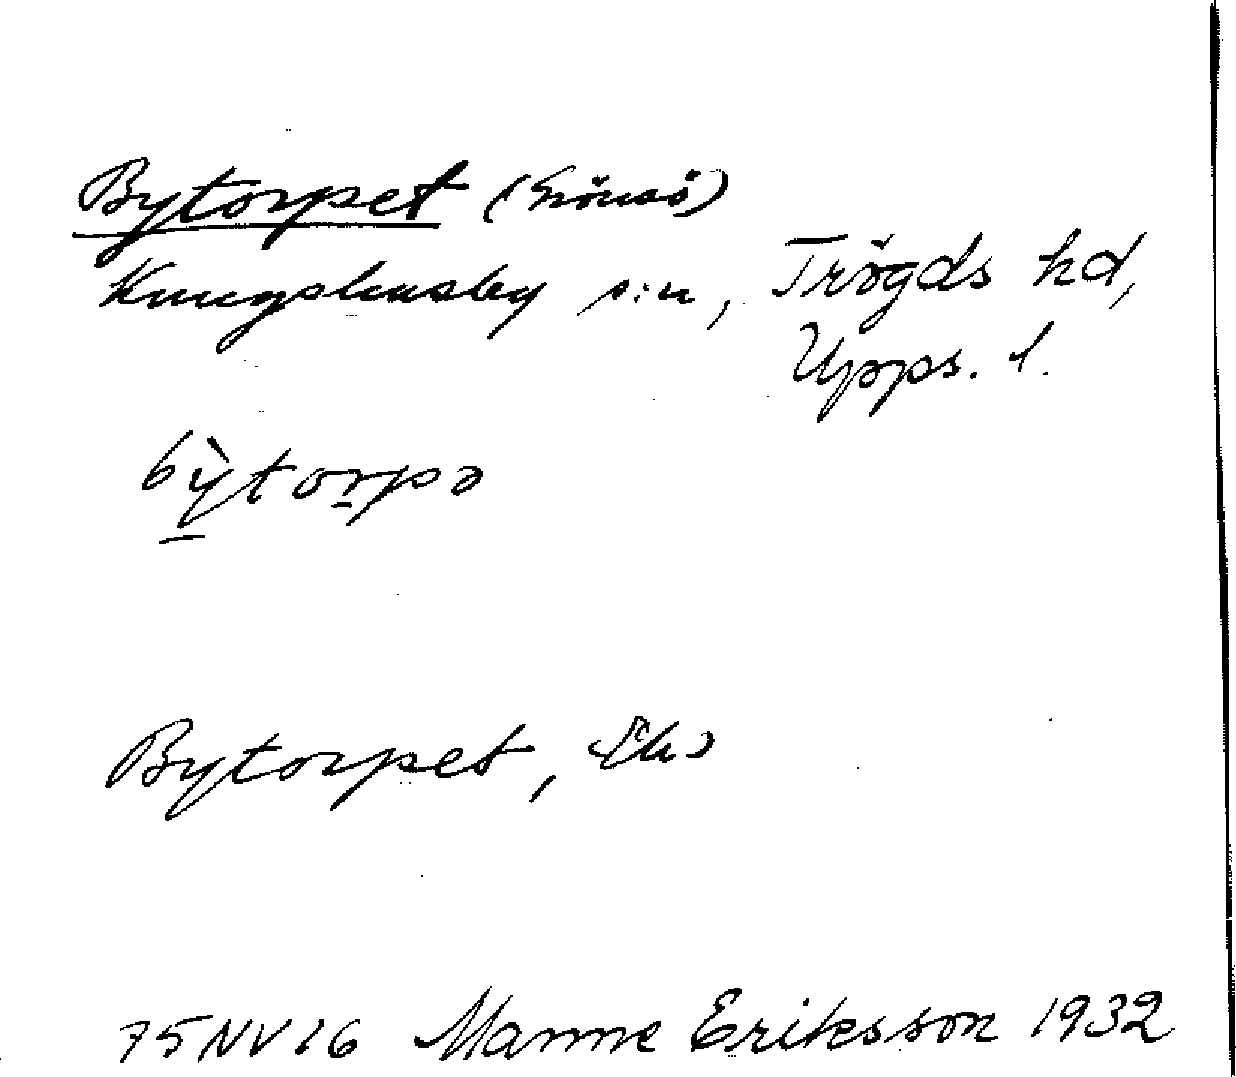 Bytorpet (Grönsö)
Kungshusby s:n, Trögds hd,
Upps. l.
bỳtorpə
Bytorpet, Eks
75NV16 Manne Eriksson 1932